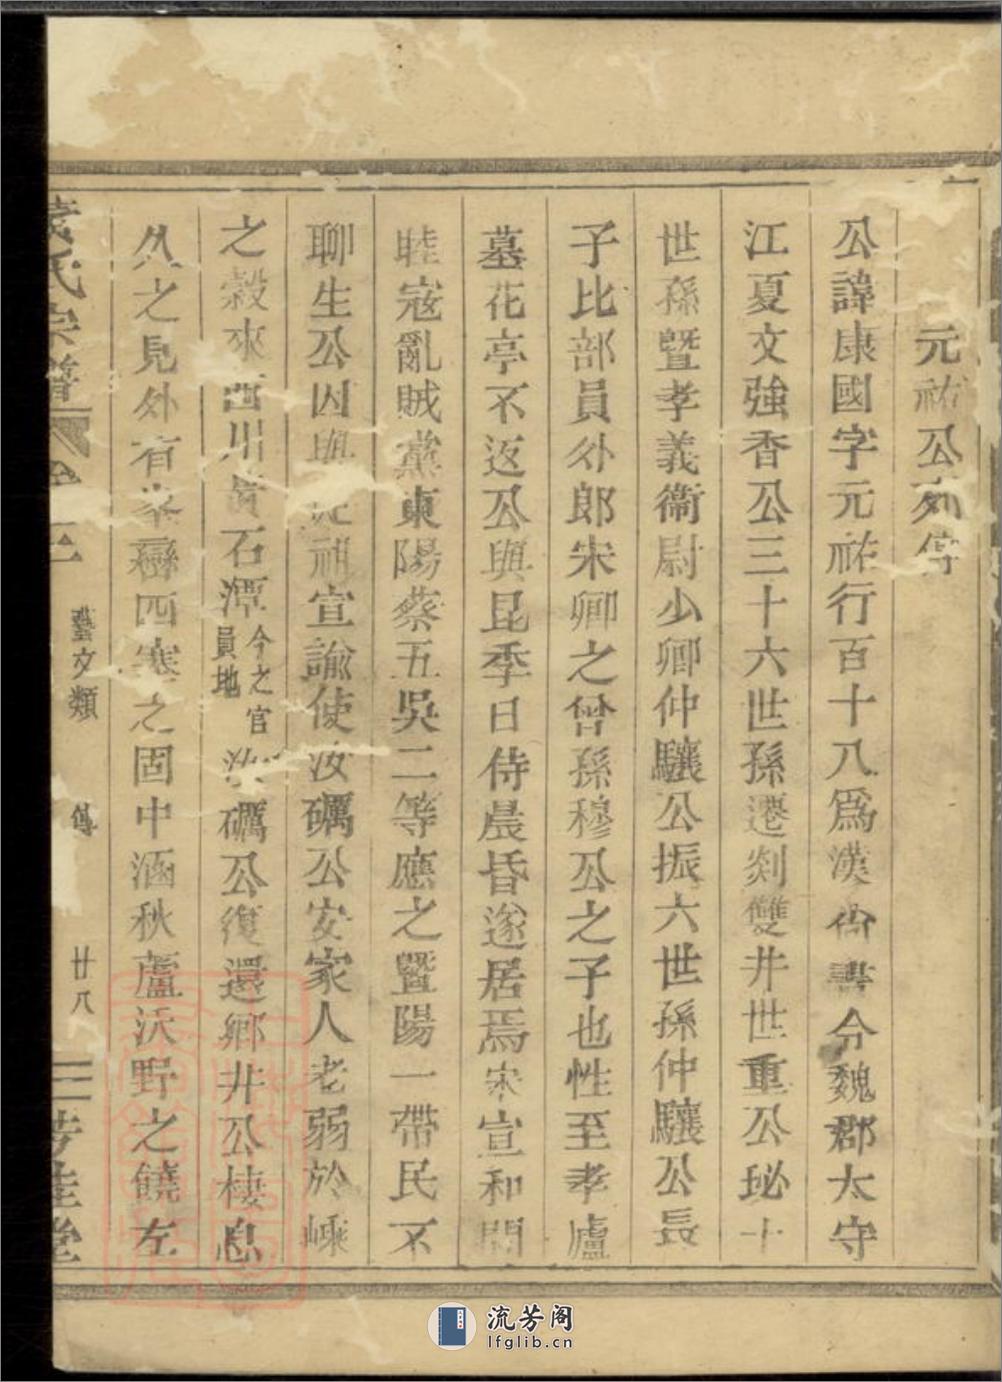 元祐公列傳
公諱康國字元祐行百十八爲漢尙書令魏郡太守
江夏文強香公三十六世孫遷剡雙井世重公玅十
世孫暨孝義衞尉少卿仲驤公振六世孫仲驤公長
子比部員外郎宋卿之曾孫穆公之子也性至孝廬
墓花亭不返公與昆季日侍晨昏遂居焉宋宣和間
睦寇亂賊黨東陽蔡五吳二等應之暨陽一帶民不
聊生公因與從祖宣諭使汝礪公安家人老弱於嵊
之穀來西川黃石潭今之官員地汝礪公復還鄉井公棲息
久之見外有峯巒四塞之固中涵秋蘆沃野之饒左
氏宗譜 卷二 藝文類 傳 廿八 芳桂堂
流芳阁
lfglib.cn